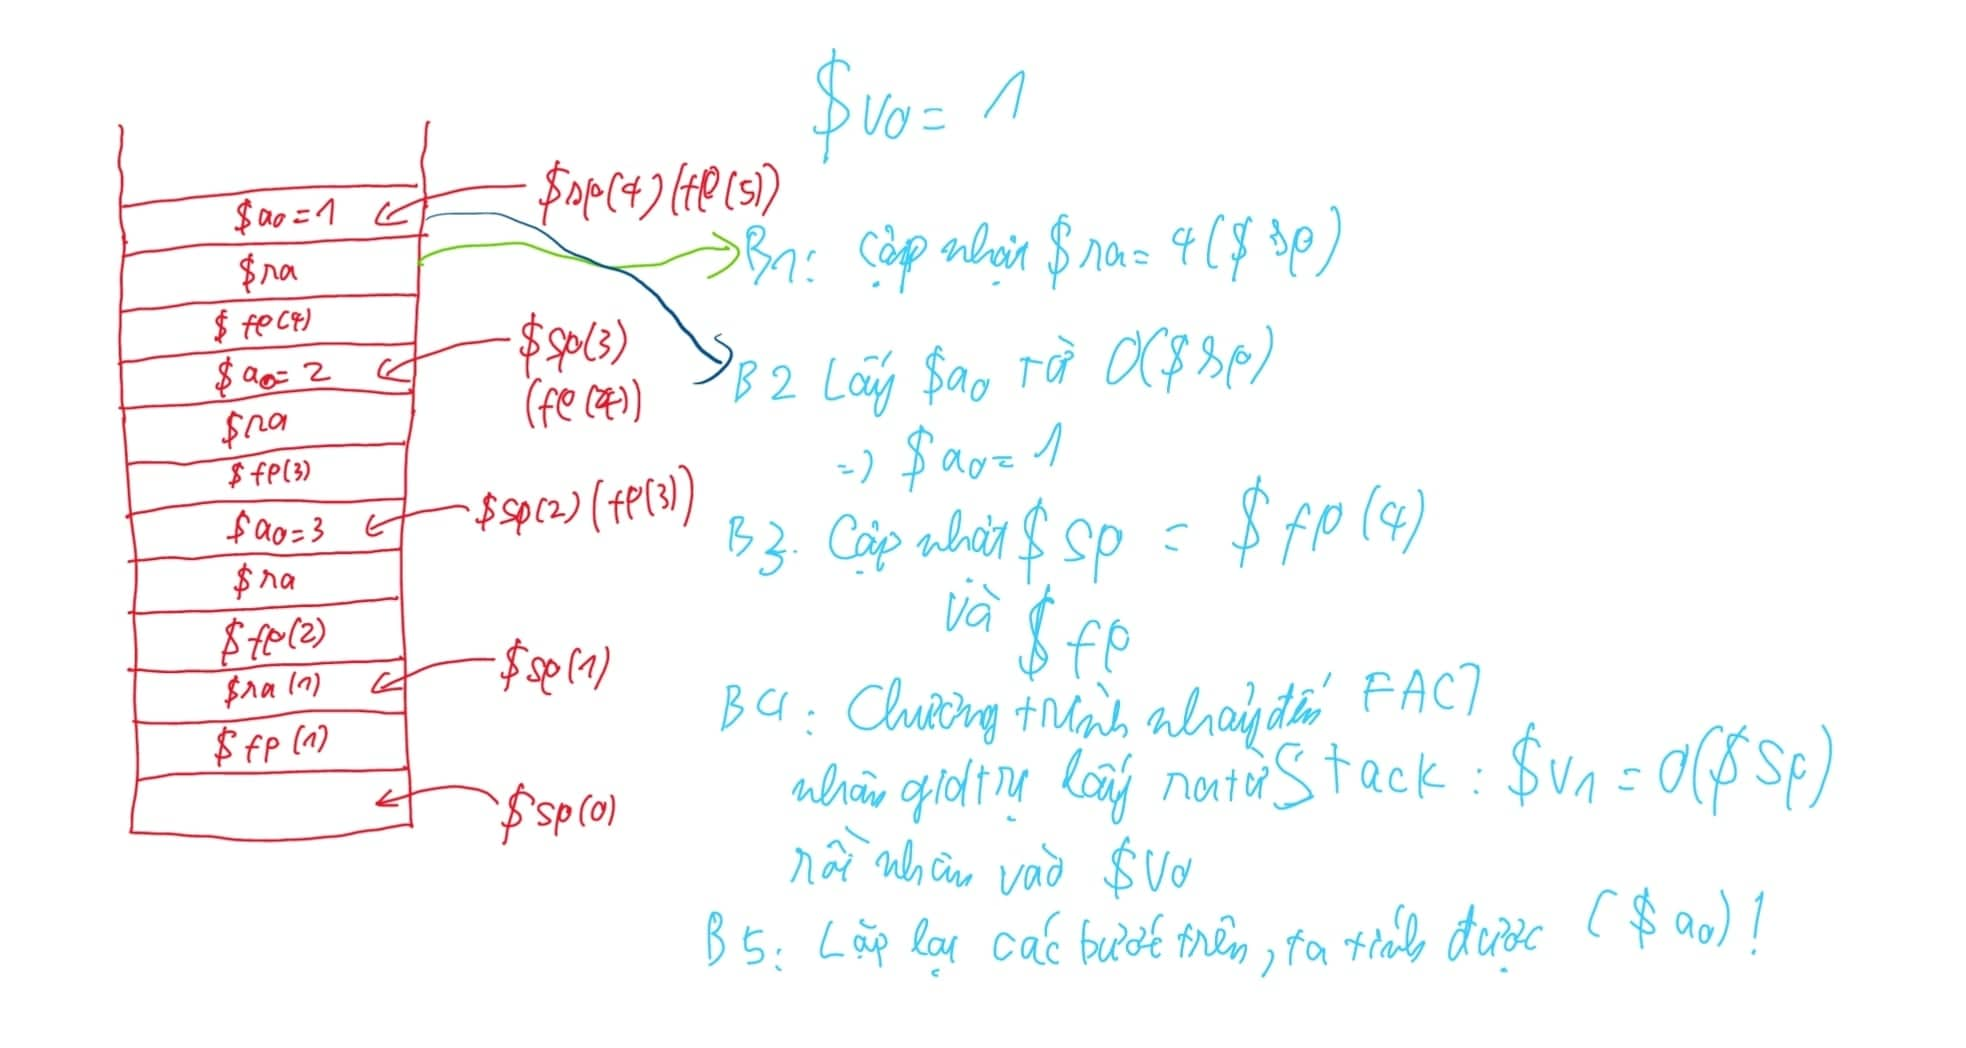 $v0 = 1
$a0 = 1
$ra
$fp(4)
$a0 = 2
$ra
$fp(3)
$a0 = 3
$ra
$fp(2)
$ra(1)
$fp(1)
$sp(4) (fp(5))
$sp(3)
(fp(4))
$sp(2) (fp(3))
$sp(1)
$sp(0)
B1: Cập nhật $ra = 4($sp)
B2 Lấy $a0 từ 0($sp)
=> $a0 = 1
B3. Cập nhật $sp = $fp(4)
và $fp
B4: Chương trình nhảy đến FACT
nhân giá trị lấy ra từ Stack: $v1 = 0($sp)
rồi nhân vào $v0
B5: Lặp lại các bước trên, ta tính được ($a0)!